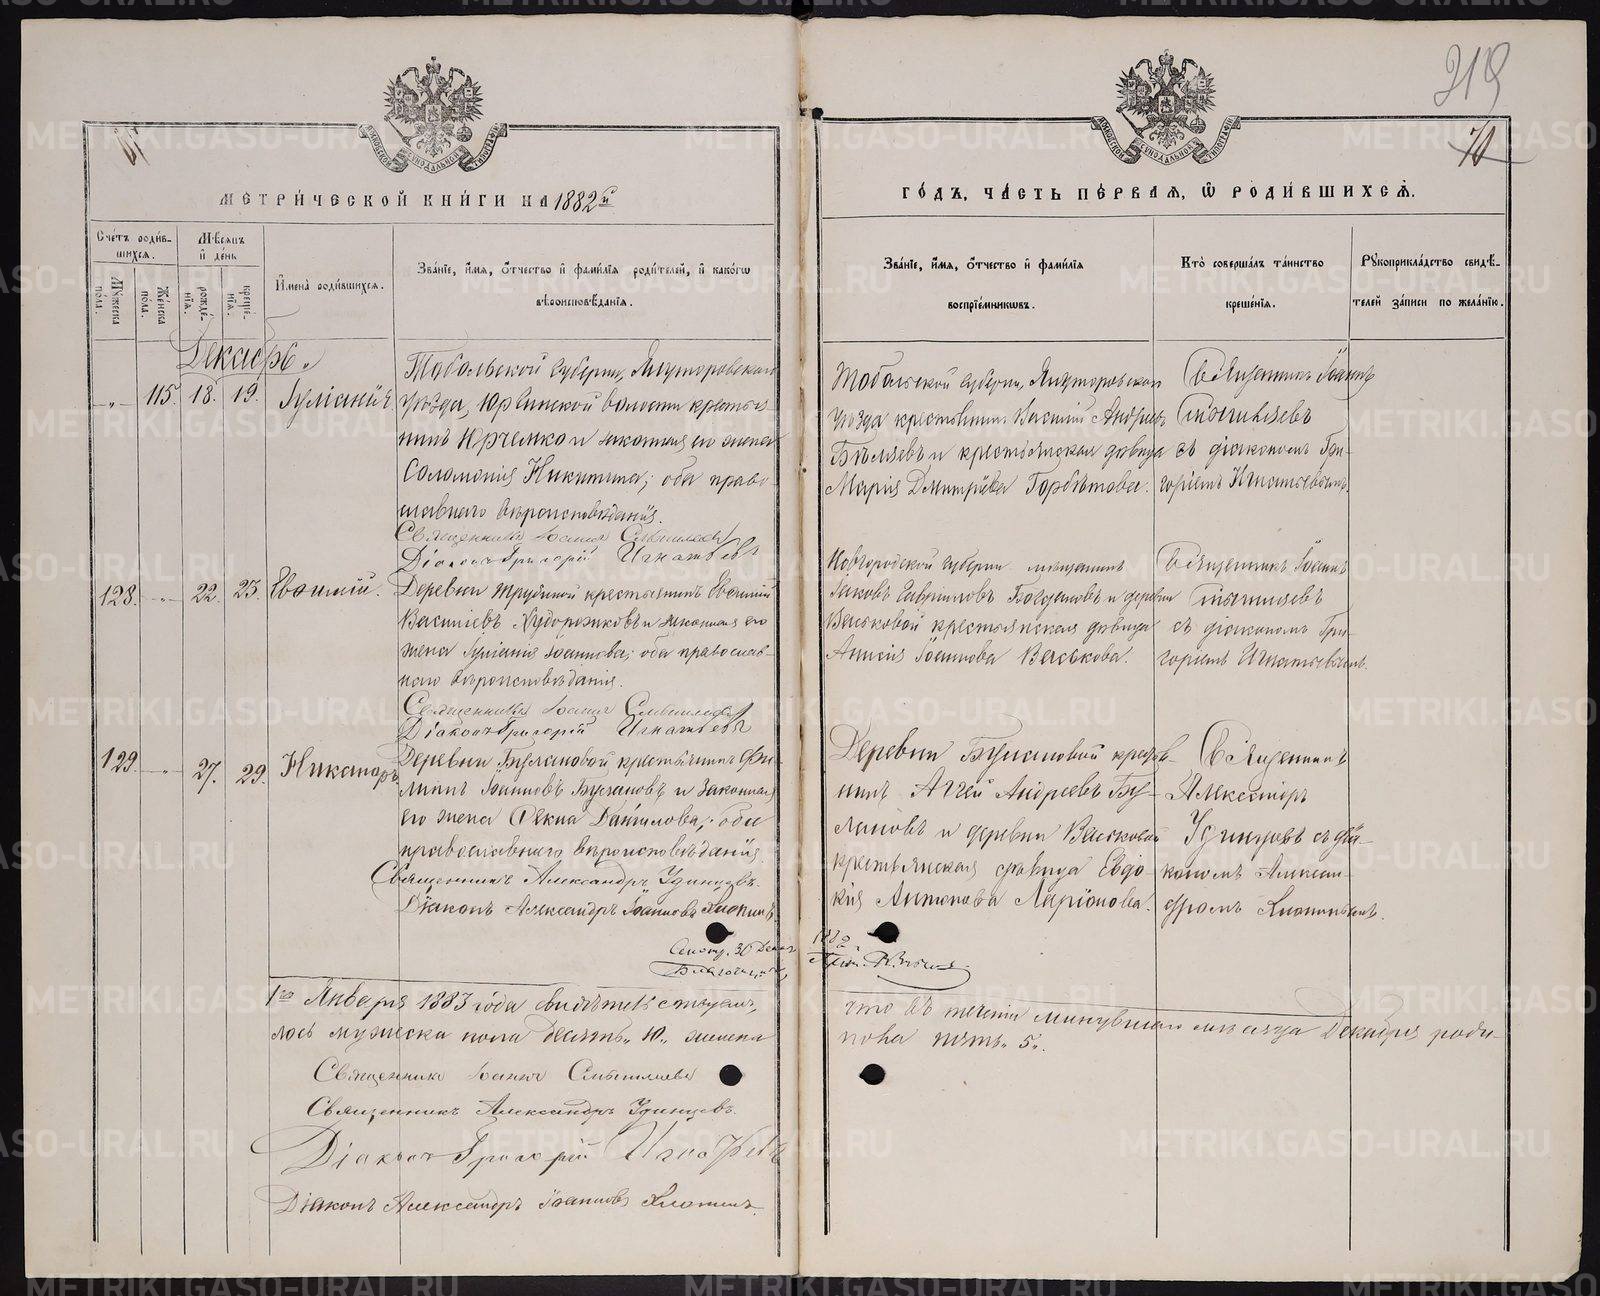 319
70
МЕТРИ́ЧЕСКОЙ КНИ́ГИ НА 1882й
ГО́ДЪ, ЧА́СТЬ ПЕ́РВАЯ, Ѿ РОДИ́ВШИХСѦ.
Сче́тъ роди́в-
шихся.
Мѣ́сяцъ
и̂ де́нь
Му́жеска по́ла.
Же́нска по́ла.
рожде́нїя.
креще́нїя.
И̂мена̀ роди́вшихся.
Зва́нїе, и̂́мя, ѻ̂́тчество и̂ фами́лїя роди́телей, и̂ како́гѡ
вѣроисповѣ́данїя.
Зва́нїе, и̂́мя, ѻ̂́тчество и̂ фами́лїя
воспрїе́мниковъ.
Кто̀ соверша́лъ та́инство
креще́нїя.
Рꙋкоприкла́дство свидѣ́-
телей за́писи по жела́нїю.
Декабрь.
115. 18. 19. Іуліанія
Тобольской губерніи, Ялуторовскаго
уѣзда, волости крестья-
нинъ и законная его жена
Соломонія Никитина; оба право-
славнаго вѣроисповѣданія.
Священникъ Іоаннъ Смышляевъ
Діаконъ Григорій Игнатьевъ
Тобольской губерніи, Ялуторовскаго
уѣзда крестьянинъ Василій Андреевъ
Бѣляевъ и крестьянская дѣвица
Марія Дмитріева Горбатова.
Священникъ Іоаннъ
Смышляевъ
съ діакономъ Гри-
горіемъ Игнатьевымъ.
128. 22. 23. Евѳимій.
Деревни Трубиной крестьянинъ Евѳимій
Василіевъ Худорожковъ и законная его
жена Іуліанія Іоаннова; оба православ-
наго вѣроисповѣданія.
Священникъ Іоаннъ Смышляевъ
Діаконъ Григорій Игнатьевъ
Новгородской губерніи мѣщанинъ
Іаковъ Гавриловъ Богдановъ и деревни
Васьковой крестьянская дѣвица
Анисія Іоаннова Васькова.
Священникъ Іоаннъ
Смышляевъ
съ діакономъ Гри-
горіемъ Игнатьевымъ.
129. 27. 29. Никаноръ
Деревни Булановой крестьянинъ Фи-
липпъ Іоанновъ Булановъ и законная
его жена Ѳекла Даніилова; оба
православнаго вѣроисповѣданія.
Священникъ Александръ Удинцевъ.
Діаконъ Александръ Іоанновъ Хлопинъ.
Деревни Булановой крестья-
нинъ Аггей Андреевъ Бу-
лановъ и деревни Васьковой
крестьянская дѣвица Евдо-
кія Антонова Ларіонова.
Священникъ
Александръ
Удинцевъ съ діа-
кономъ Алексан-
дромъ Хлопинымъ.
30 Декаб. 1882 г.
Благочин.
1го Января 1883 года свидѣтельствуемъ, что въ теченіи минувшаго мѣсяца Декабря роди-
лось мужеска пола десять „10„ женска пола пять „5„.
Священникъ Іоаннъ Смышляевъ
Священникъ Александръ Удинцевъ.
Діаконъ Григорій Игнатьевъ
Діаконъ Александръ Іоанновъ Хлопинъ.
METRIKI.GASO-URAL.RU